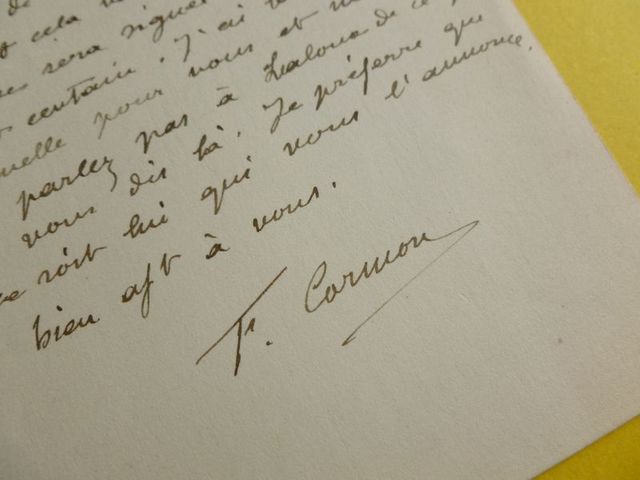 de
cela
sera signe
certain. J'ai
pour vous et
parlez pas à Lalou de ce
vous dis là. Je préfère que
ce soit lui qui vous l'annonce.
bien afft à vous.
F. Cormon